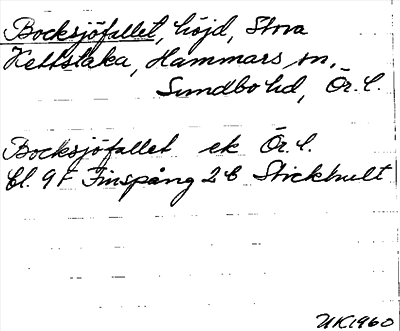 Bocksjöfallet, höjd, Stora
Kettstaka, Hammars sn,
Sundbo hd, Ör. l.
Bocksjöfallet ek Ör. l.
bl. 9F Finspång 2b Stickhult
UK1960